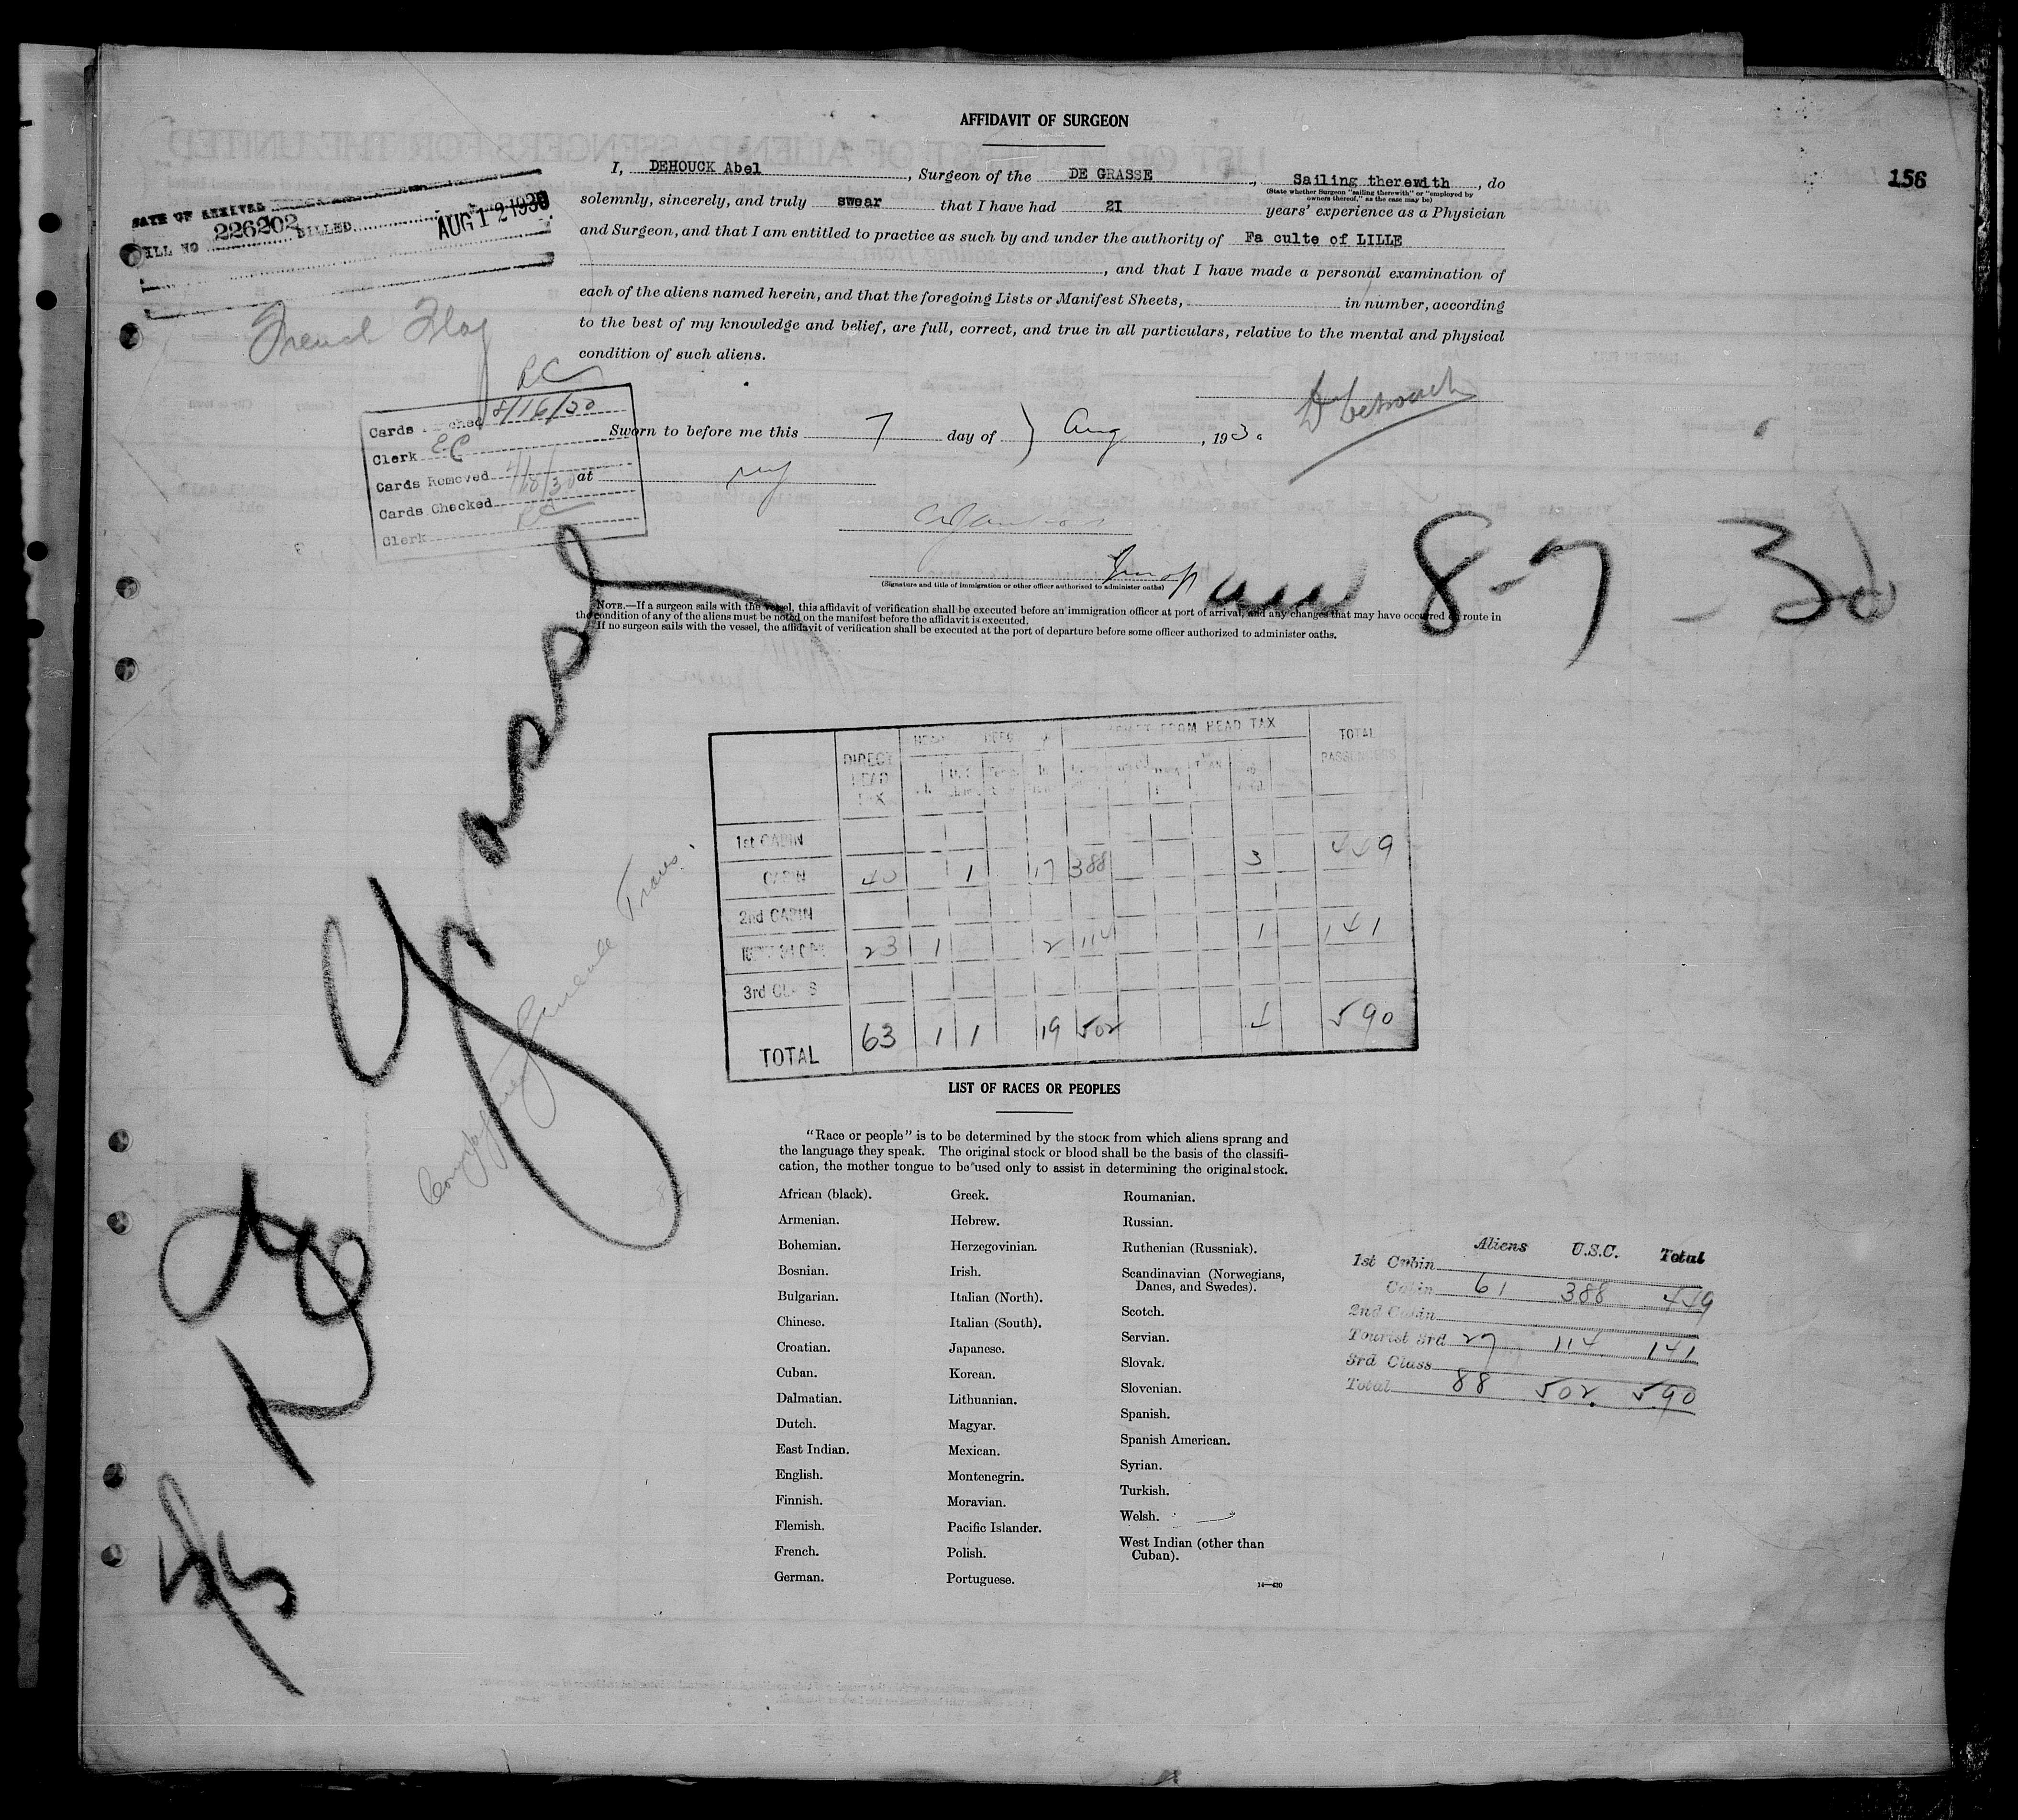 AFFIDAVIT OF SURGEON
156
I, DEHOUCK Abel, Surgeon of the DE GRASSE, Sailing therewith, do
(State whether Surgeon "sailing therewith" or "employed by
owners thereof," as the case may be)
solemnly, sincerely, and truly swear that I have had 2I years' experience as a Physician
and Surgeon, and that I am entitled to practice as such by and under the authority of Fa culte of LILLE
, and that I have made a personal examination of
each of the aliens named herein, and that the foregoing Lists or Manifest Sheets, in number, according
to the best of my knowledge and belief, are full, correct, and true in all particulars, relative to the mental and physical
condition of such aliens.
DATE OF ARRIVAL
BILL NO 226202 BILLED AUG 12 1930
French Flag
RC
Cards 8/16/30
Clerk EC
Cards Removed
Cards Checked RC
Clerk
Sworn to before me this 7 day of Aug, 1930
at NY
(Signature and title of immigration or other officer authorized to administer oaths)
8-7-30
NOTE.—If a surgeon sails with the vessel, this affidavit of verification shall be executed before an immigration officer at port of arrival, and any changes that may have occurred en route in
the condition of any of the aliens must be noted on the manifest before the affidavit is executed.
If no surgeon sails with the vessel, the affidavit of verification shall be executed at the port of departure before some officer authorized to administer oaths.
SS De Grasse
Compagnie Generale Trans.
DIRECT HEAD TAX FROM HEAD TAX TOTAL PASSENGERS
1st CABIN
CABIN 40 1 17 388 3 449
2nd CABIN
23 1 2 114 1 141
3rd CLASS
TOTAL 63 1 1 19 502 4 590
LIST OF RACES OR PEOPLES
"Race or people" is to be determined by the stock from which aliens sprang and
the language they speak. The original stock or blood shall be the basis of the classifi-
cation, the mother tongue to be used only to assist in determining the original stock.
African (black).
Armenian.
Bohemian.
Bosnian.
Bulgarian.
Chinese.
Croatian.
Cuban.
Dalmatian.
Dutch.
East Indian.
English.
Finnish.
Flemish.
French.
German.
Greek.
Hebrew.
Herzegovinian.
Irish.
Italian (North).
Italian (South).
Japanese.
Korean.
Lithuanian.
Magyar.
Mexican.
Montenegrin.
Moravian.
Pacific Islander.
Polish.
Portuguese.
Roumanian.
Russian.
Ruthenian (Russniak).
Scandinavian (Norwegians,
Danes, and Swedes).
Scotch.
Servian.
Slovak.
Slovenian.
Spanish.
Spanish American.
Syrian.
Turkish.
Welsh.
West Indian (other than
Cuban).
14—430
Aliens U.S.C. Total
1st Cabin
Cabin 61 388 449
2nd Cabin
Tourist 3rd 27 114 141
3rd Class
Total 88 502 590